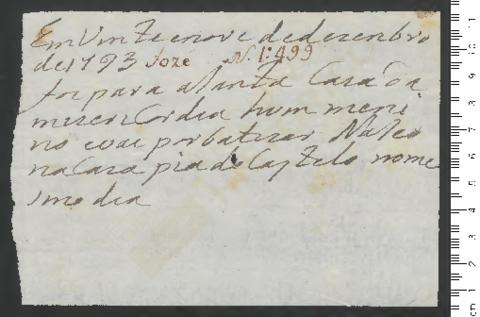 Em Vinte enove dedezenbro
de 1793 Jozé N. 1:499
foi para a Santa Caza da
mizericordia hum meni
no evai porbatizar Naseo
na Caza pia do Castelo nome
smo dia